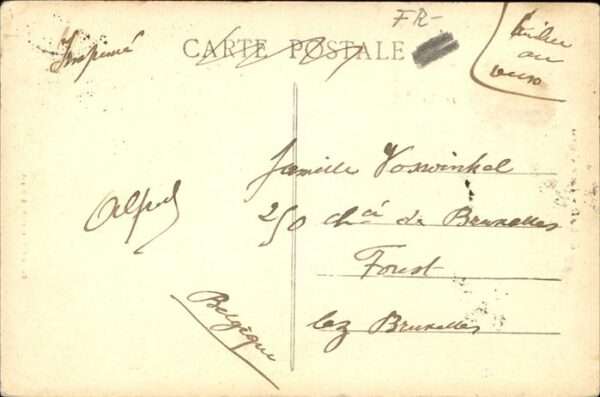 Imprimé
CARTE POSTALE
FR-
timbre
au
verso
famille Voswinkel
250 chée de Bruxelles
Forest
lez Bruxelles
Alfred
Belgique